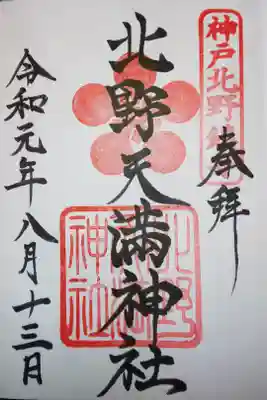 奉拝
北野天満神社
令和元年八月十三日
神戸北野